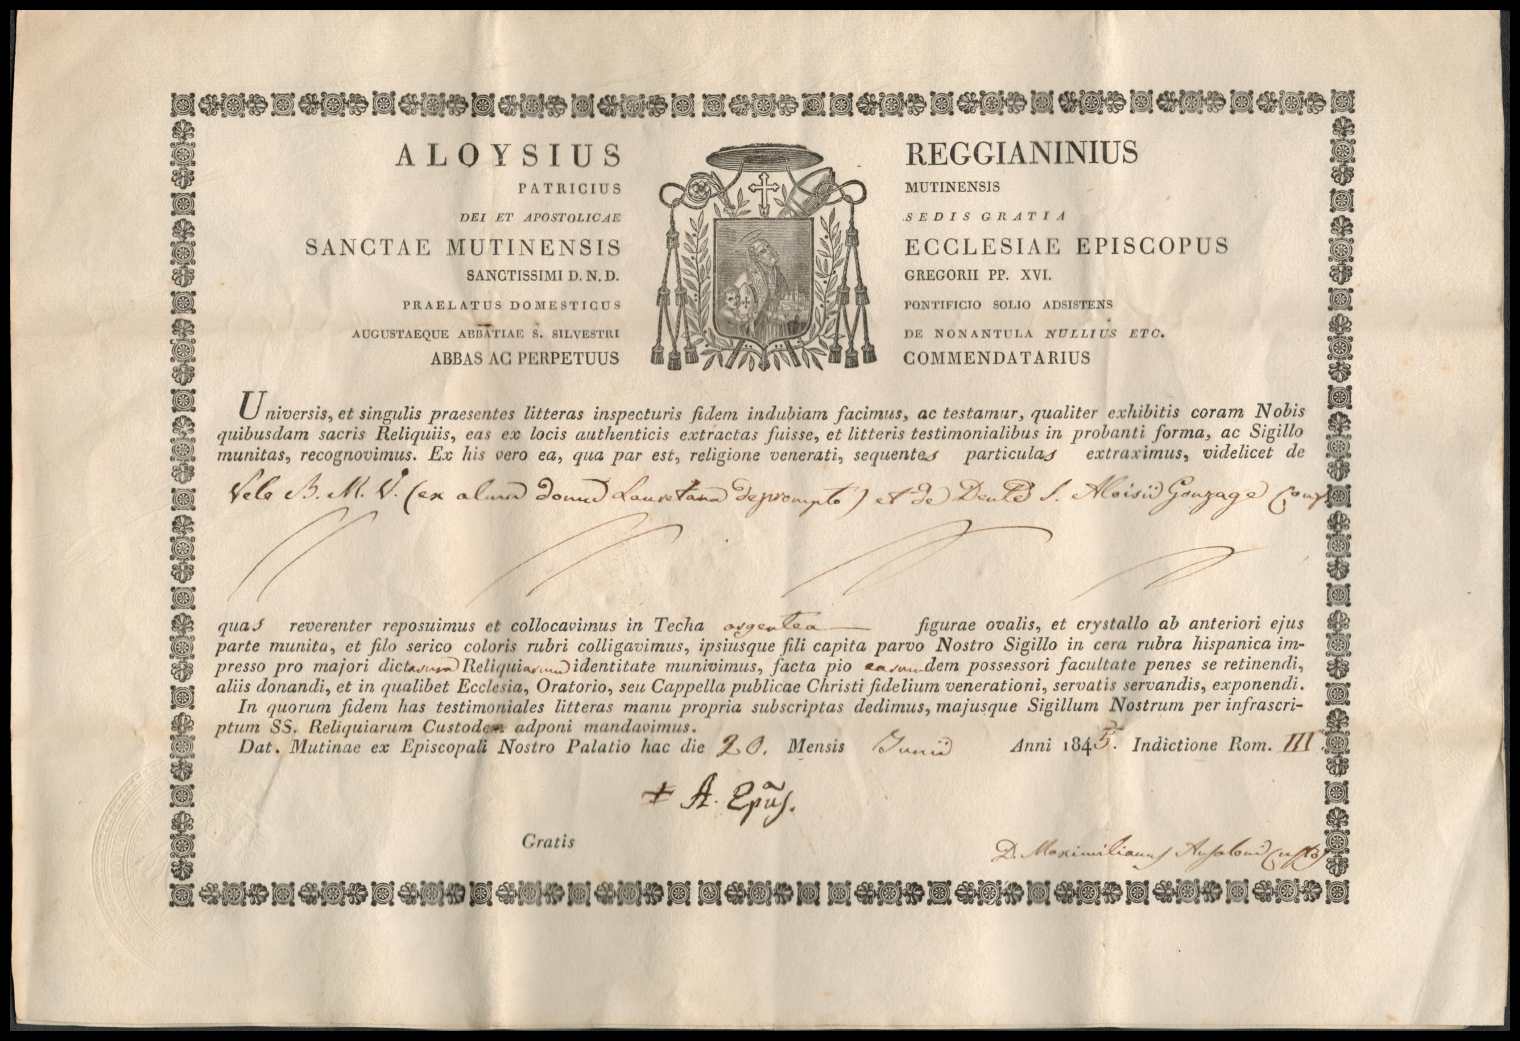 ALOYSIUS REGGIANINIUS
PATRICIUS MUTINENSIS
DEI ET APOSTOLICAE SEDIS GRATIA
SANCTAE MUTINENSIS ECCLESIAE EPISCOPUS
SANCTISSIMI D. N. D. GREGORII PP. XVI.
PRAELATUS DOMESTICUS PONTIFICIO SOLIO ADSISTENS
AUGUSTAEQUE ABBATIAE S. SILVESTRI DE NONANTULA NULLIUS ETC.
ABBAS AC PERPETUUS COMMENDATARIUS
Universis, et singulis praesentes litteras inspecturis fidem indubiam facimus, ac testamur, qualiter exhibitis coram Nobis
quibusdam sacris Reliquiis, eas ex locis authenticis extractas fuisse, et litteris testimonialibus in probanti forma, ac Sigillo
munitas, recognovimus. Ex his vero ea, qua par est, religione venerati, sequentes particulas extraximus, videlicet de
Velo B. M. V. (ex alma domo Lauretana deprompto) et de Dente S. Aloisii Gonzage Conf.
quas reverenter reposuimus et collocavimus in Techa argentea figurae ovalis, et crystallo ab anteriori ejus
parte munita, et filo serico coloris rubri colligavimus, ipsiusque fili capita parvo Nostro Sigillo in cera rubra hispanica im-
presso pro majori dictarum Reliquiarum identitate munivimus, facta pio earumdem possessori facultate penes se retinendi,
aliis donandi, et in qualibet Ecclesia, Oratorio, seu Cappella publicae Christi fidelium venerationi, servatis servandis, exponendi.
In quorum fidem has testimoniales litteras manu propria subscriptas dedimus, majusque Sigillum Nostrum per infrascri-
ptum SS. Reliquiarum Custodem adponi mandavimus.
Dat. Mutinae ex Episcopali Nostro Palatio hac die 20. Mensis Junii Anni 1845. Indictione Rom. III
+ A. Epus.
Gratis
D. Maximilianus Ansaloni Custos